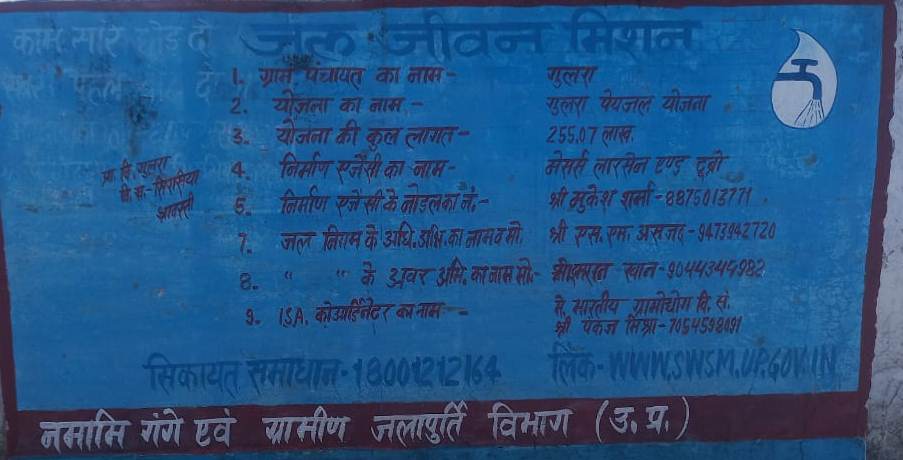 जल जीवन मिशन
काम सारे छोड़ दो
1. ग्राम पंचायत का नाम - गुलरा
2. योजना का नाम - गुलरा पेयजल योजना
3. योजना की कुल लागत - 255.07 लाख
4. निर्माण एजेंसी का नाम - मेसर्स लारसेन एण्ड टूब्रो
5. निर्माण एजेंसी के नोडल का नं. - श्री मुकेश शर्मा - 8875013771
7. जल निगम के अधि. अभि. का नाम व मो. श्री एस. एम. असजद - 9473942720
8. " " के अवर अभि. का नाम मो. - खान - 9044344982
9. ISA. कोआर्डिनेटर का नाम - मे. भारतीय ग्रामोद्योग वि. सं.
श्री पंकज मिश्रा - 7054598091
प्रा. वि. गुलरा
वि. ख. - सिरसिया
श्रावस्ती
सिकायत समाधान - 18001212164 लिंक - WWW.SWSM.UP.GOV.IN
नमामि गंगे एवं ग्रामीण जलापुर्ति विभाग (उ. प्र.)